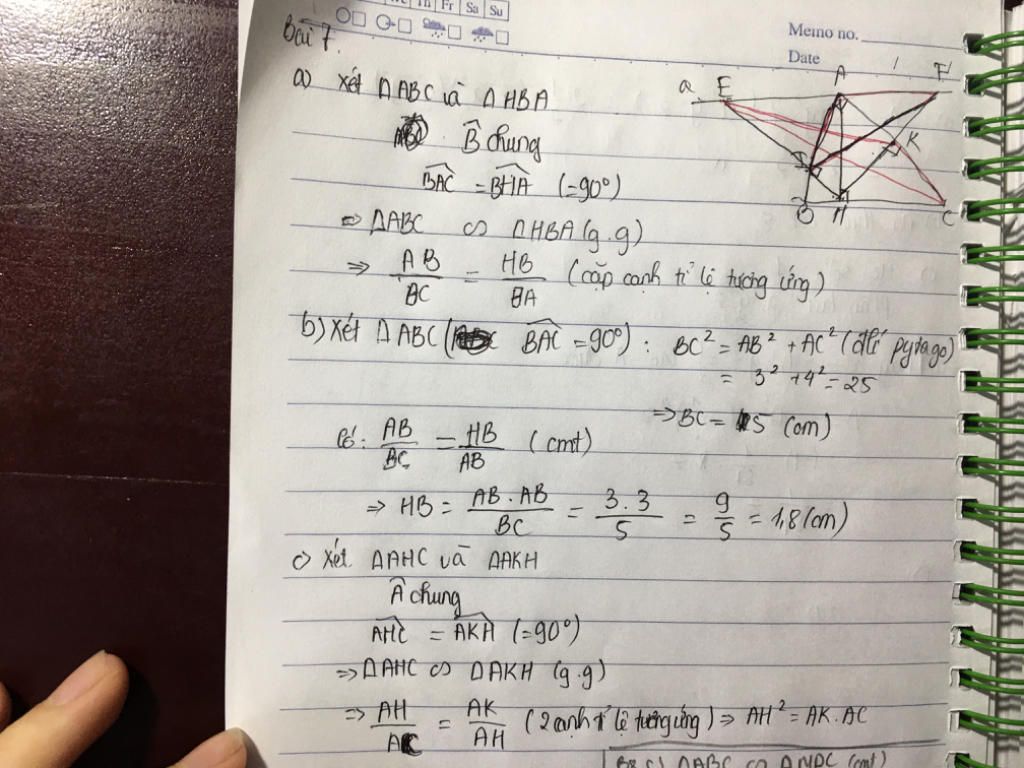 Th Fr Sa Su
Memo no.
Date
Bài 7.
a E A F
K
B H C
a) Xét ΔABC và ΔHBA
B̂ chung
BAC = BHA (=90°)
⇒ ΔABC ∽ ΔHBA (g.g)
⇒ AB/BC = HB/BA (cặp cạnh tỉ lệ tương ứng)
b) Xét ΔABC ( BAC = 90°) : BC² = AB² + AC² (đlí pytago)
= 3² + 4² = 25
⇒ BC = 5 (cm)
Có: AB/BC = HB/AB (cmt)
⇒ HB = AB.AB/BC = 3.3/5 = 9/5 = 1,8 (cm)
c) Xét ΔAHC và ΔAKH
 chung
AHC = AKH (=90°)
⇒ ΔAHC ∽ ΔAKH (g.g)
⇒ AH/AC = AK/AH (2 cạnh tỉ lệ tương ứng) ⇒ AH² = AK.AC
ΔABC ∽ (cmt)